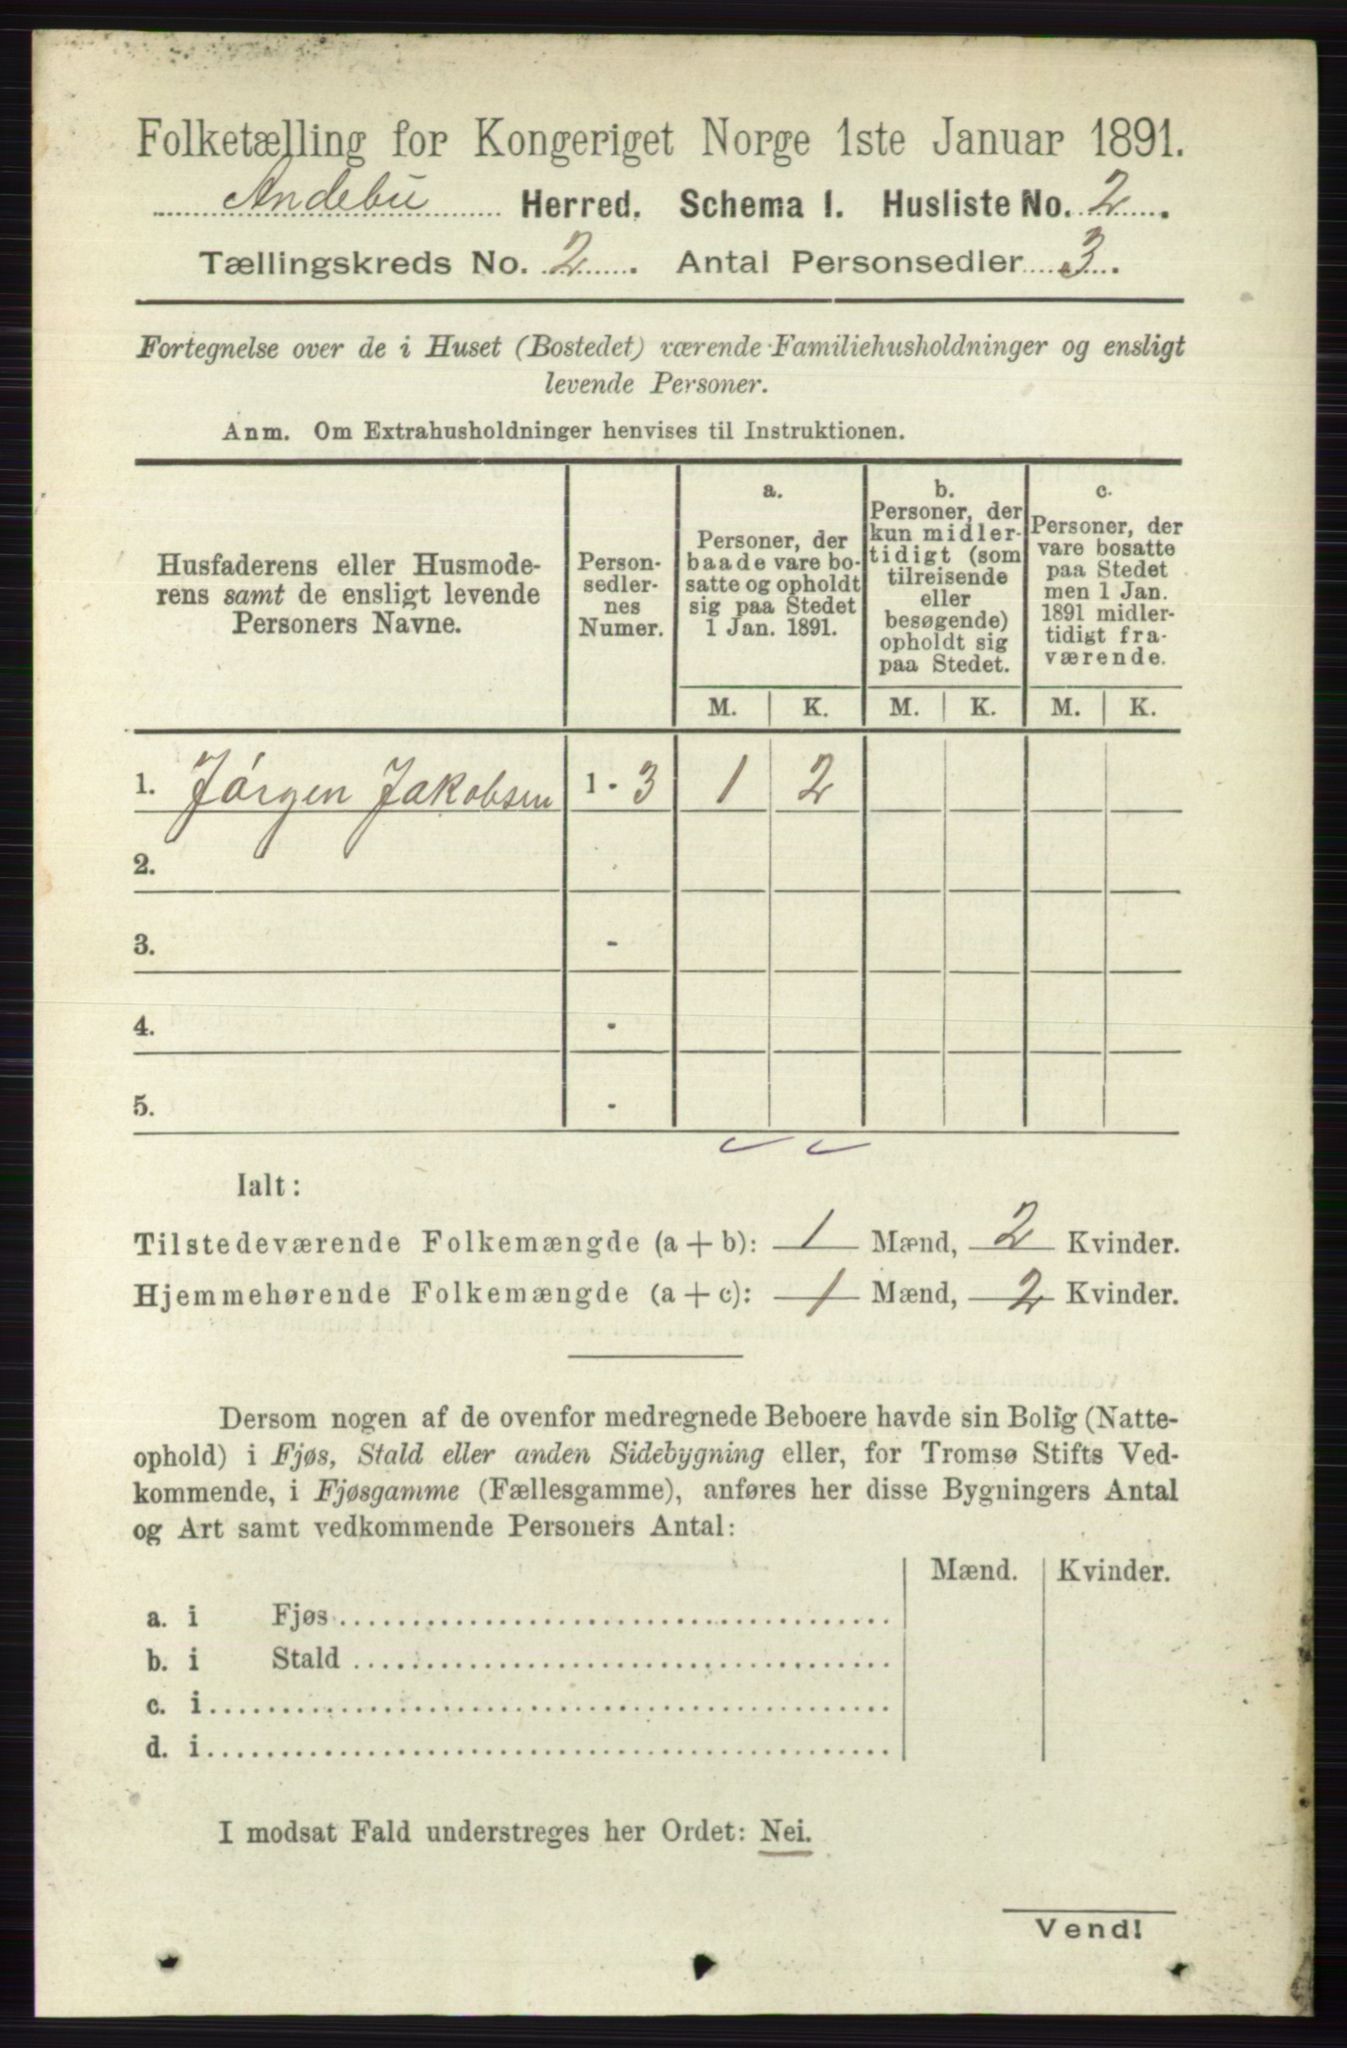 Folketælling for Kongeriget Norge 1ste Januar 1891.
Andebu Herred. Schema I. Husliste No. 2.
Tællingskreds No. 2. Antal Personsedler 3.
Fortegnelse over de i Huset (Bostedet) værende Familiehusholdninger og ensligt
levende Personer.
Anm. Om Extrahusholdninger henvises til Instruktionen.
Husfaderens eller Husmode-
rens samt de ensligt levende
Personers Navne.
Person-
sedler-
nes
Numer.
a.
Personer, der
baade vare bo-
satte og opholdt
sig paa Stedet
1 Jan. 1891.
b.
Personer, der
kun midler-
tidigt (som
tilreisende
eller
besøgende)
opholdt sig
paa Stedet.
c.
Personer, der
vare bosatte
paa Stedet
men 1 Jan.
1891 midler-
tidigt fra-
værende.
M. K. M. K. M. K.
1. Jørgen Jakobsen 1 - 3 1 2
2. -
3. -
4. -
5. -
Ialt:
Tilstedeværende Folkemængde (a + b): 1 Mænd, 2 Kvinder.
Hjemmehørende Folkemængde (a + c): 1 Mænd, 2 Kvinder.
Dersom nogen af de ovenfor medregnede Beboere havde sin Bolig (Natte-
ophold) i Fjøs, Stald eller anden Sidebygning eller, for Tromsø Stifts Ved-
kommende, i Fjøsgamme (Fællesgamme), anføres her disse Bygningers Antal
og Art samt vedkommende Personers Antal:
Mænd. Kvinder.
a. i Fjøs
b. i Stald
c. i
d. i
I modsat Fald understreges her Ordet: Nei.
Vend!